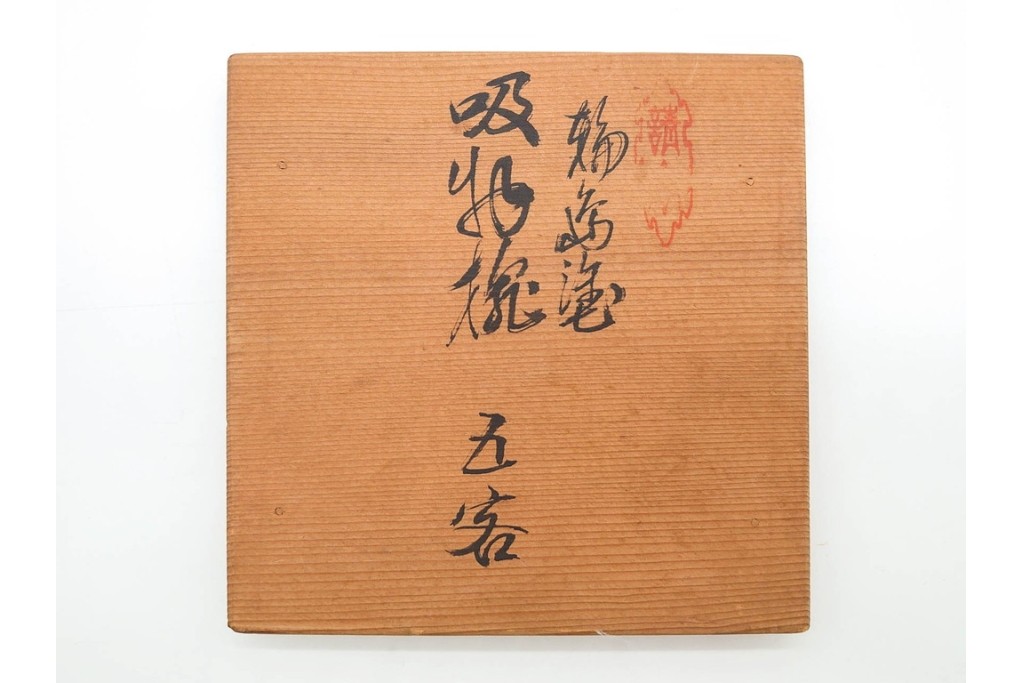 輪島塗
吸物椀 五客